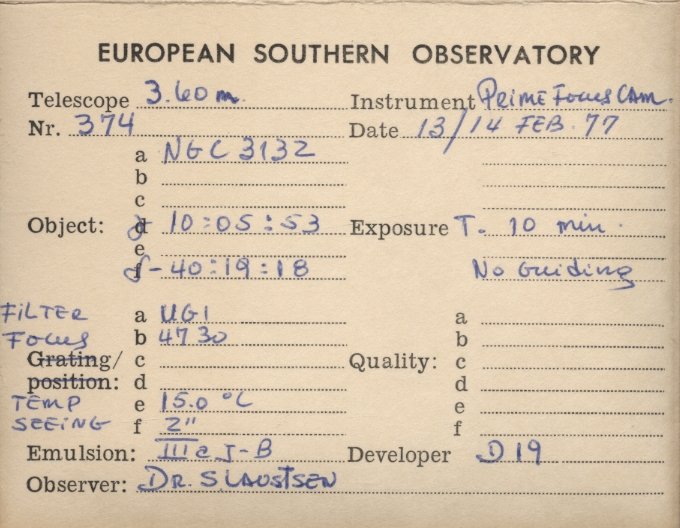 EUROPEAN SOUTHERN OBSERVATORY
Telescope 3.60 m. Instrument PRIME FOCUS CAM.
Nr. 374 Date 13/14 FEB. 77
a NGC 3132
b
c
Object: d 10:05:53 Exposure T. 10 min.
e
f δ -40:19:18 No Guiding
FILTER a UG1 a
Focus b 4730 b
Grating/ c Quality: c
position: d d
TEMP e 15.0 °C e
SEEING f 2" f
Emulsion: III a J-B Developer D19
Observer: DR. S LAUSTSEN